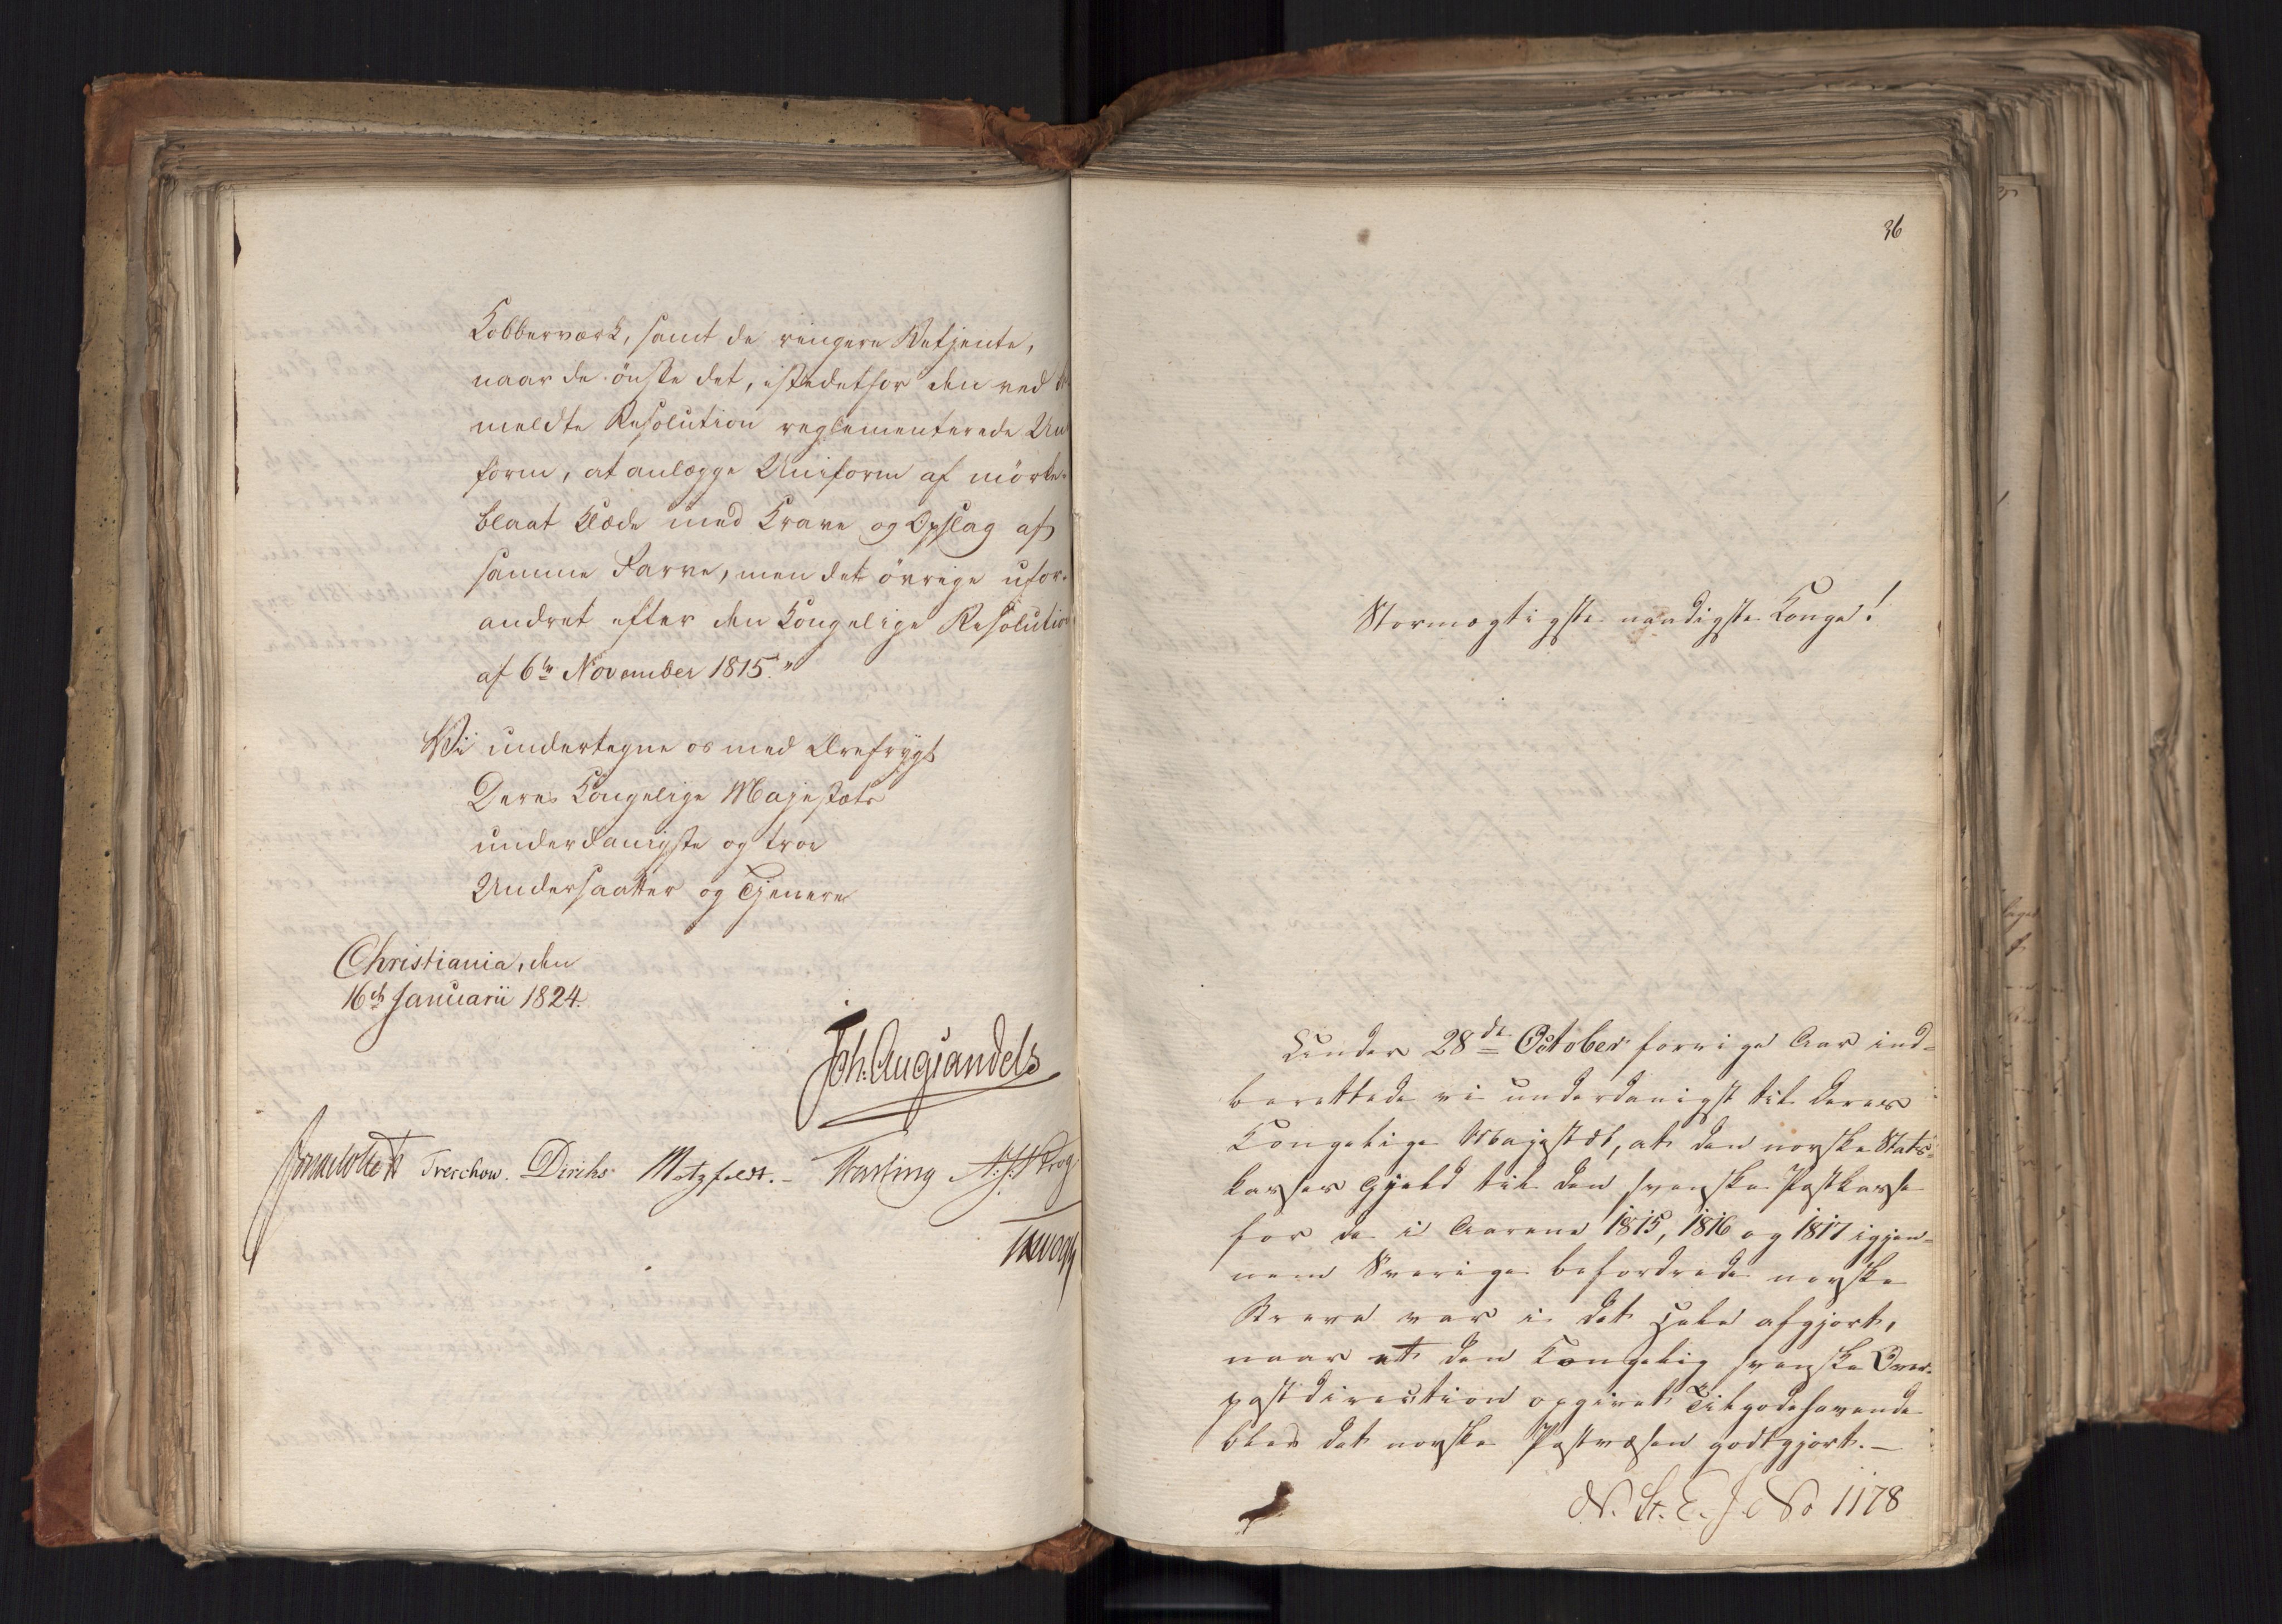 Kobberværk, samt de ringere Betjente,
naar de ønske det, istedetfor den ved
meldte Resolution reglementerede Uni
form, at anlægge Uniform af mörke-
blaat Klæde med Krave og Opslag af
samme Farve, men det övrige ufor-
andret efter den Kongelige Resolution
af 6te November 1815."
Vi undertegne os med Ærefrygt
Deres Kongelige Majestæts
underdanigste og troe
Undersaatter og Tjenere
Christiania, den
16de Januarii 1824.
Joh: Aug: Sandels
Sommerhielm Treschow. Diriks Motzfeldt. - Fasting A: J: Krog
36
Stormægtigste naadigste Konge!
Under 28de October forrige Aar ind-
berettede vi underdanigst til Deres
Kongelige Majestæt, at den norske Stats-
kasses Gjæld til den svenske Postkasse
for de i Aarene 1815, 1816 og 1817 igjen-
nem Sverige befordrede norske
Breve var i det Hele afgjort,
naar et den Kongelig svenske Over-
postdirection opgivet Tilgodehavende
blev det norske Postvæsen godtgjort. -
N. St. E. J. No 1178